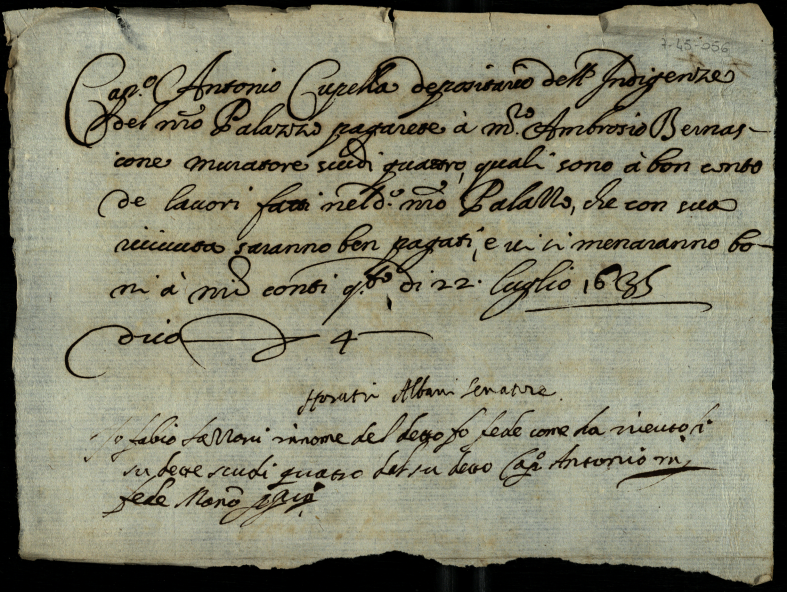 7-45-256
Cap.º Antonio Cupella depositario dell' Indigenze
del nro Palazzo pagarete à m.ro Ambrosio Bernas-
cone muratore scudi quattro, quali sono à bon conto
de lauori fatti nel d.º nro Palazzo, che con sua
riceuuta saranno ben pagati, e ui si menaranno bo-
ni à nri conti q.to di 22. luglio 1635
dico 4
Horatii Albani Senatore
Io fabio in nome del detto fo fede come ha riceuto li
su dette scudi quatro dal su detto Cap.º Antonio in
fede Mano